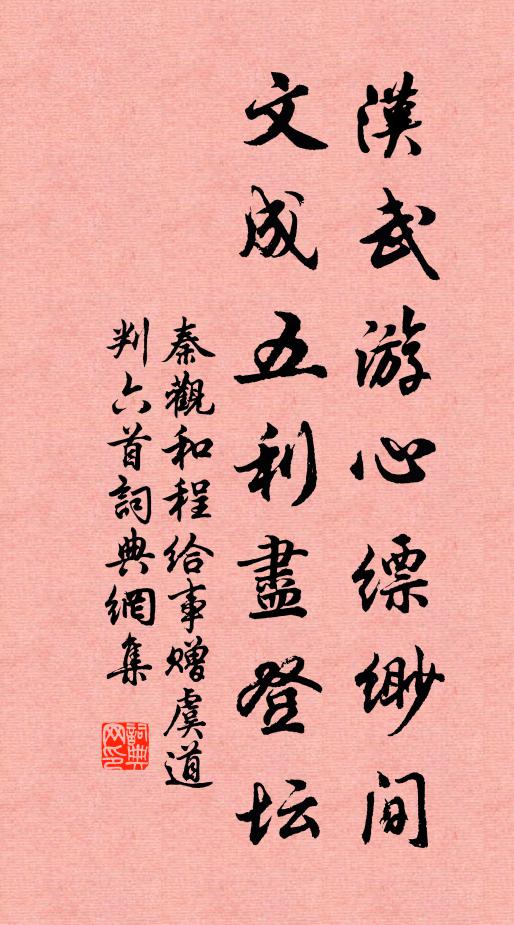 漢武游心縹緲間
文成五利盡登坛
秦觀和程給事贈虞道
判六首詞典網集
詞典网印